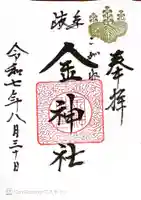 奉拝
こがね
岐阜
金神社
令和七年八月三十日